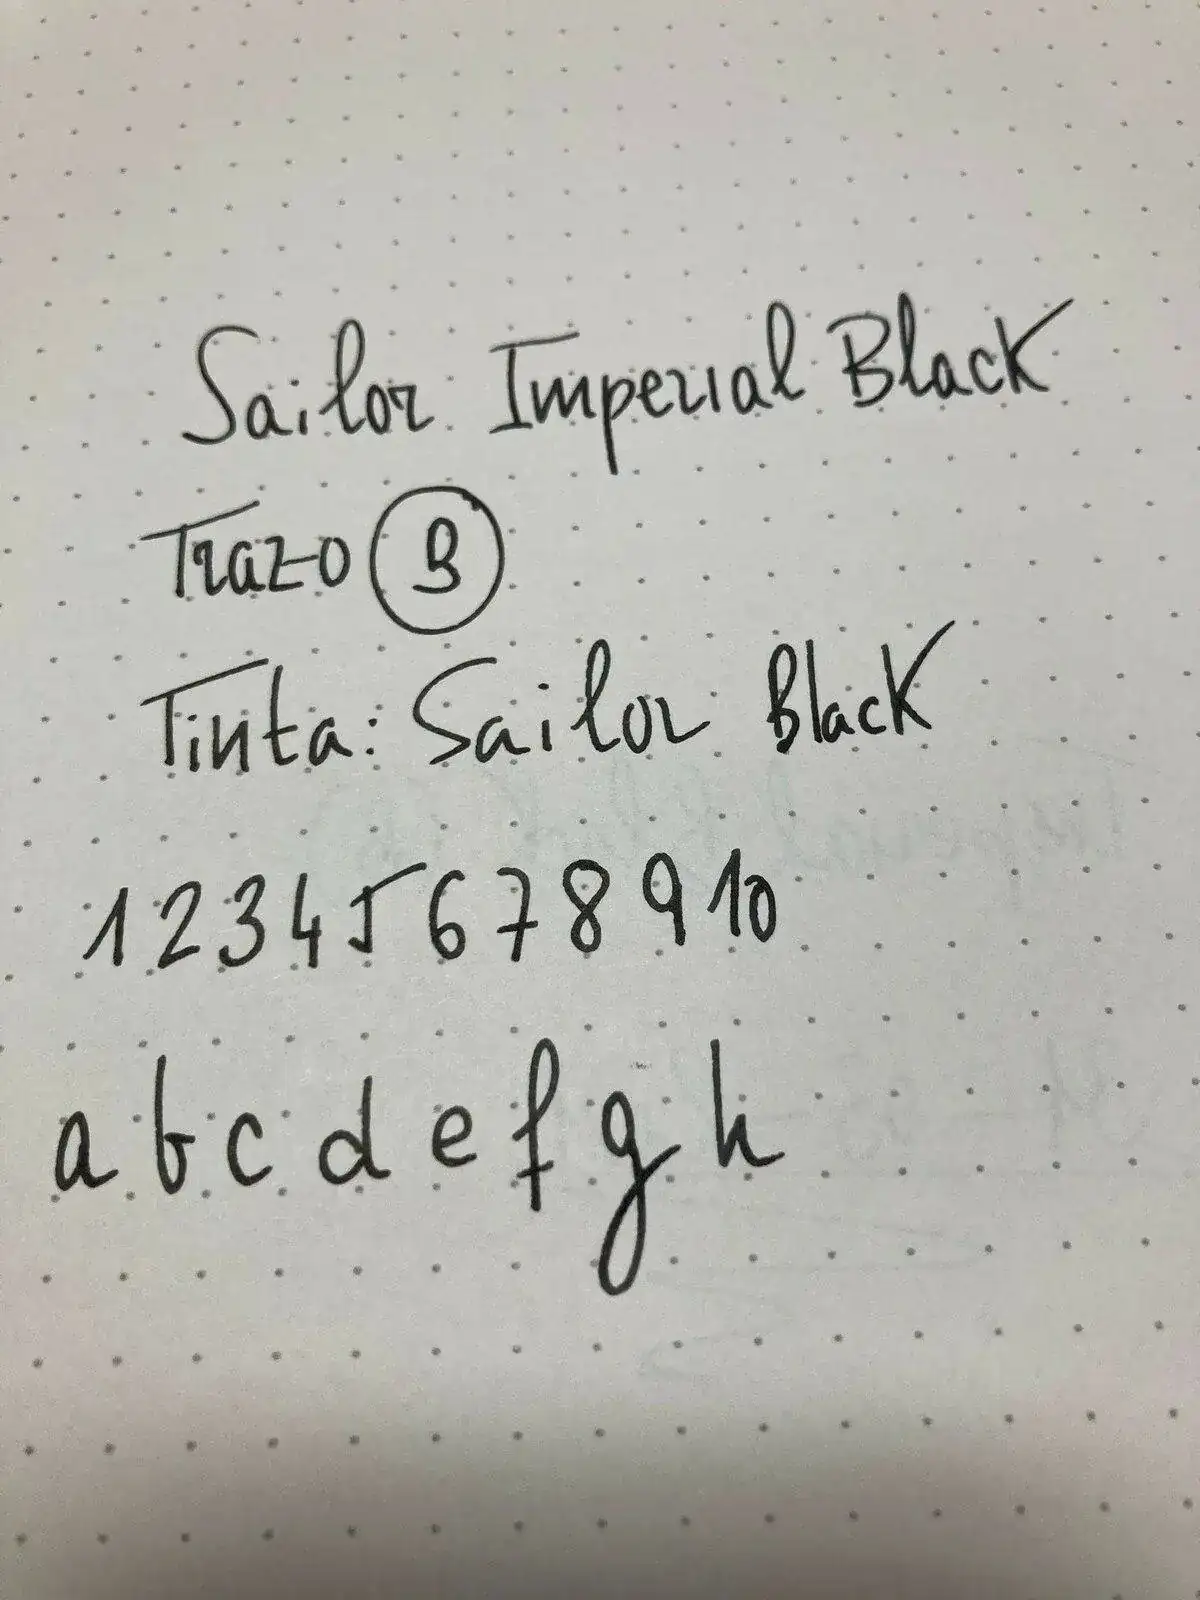 Sailor Imperial Black
Trazo B
Tinta: Sailor Black
1 2 3 4 5 6 7 8 9 10
a b c d e f g h